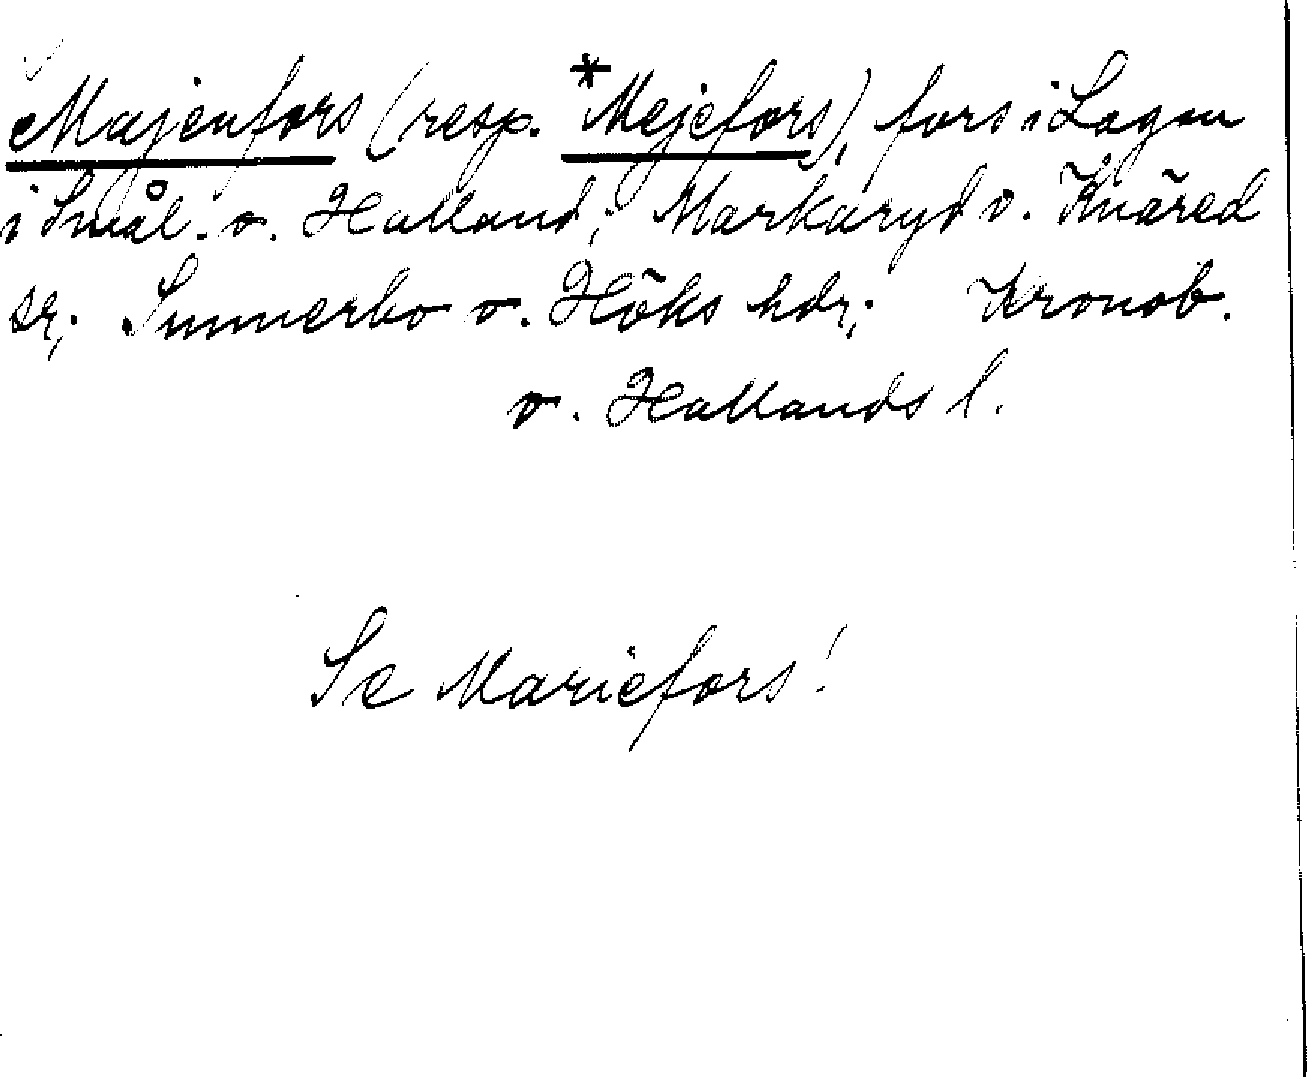 Majenfors (resp. *Mejefors), fors i Lagan
i Smål. o. Halland; Markaryd o. Knäred
sr; Sunnerbo o. Höks hdr; Kronob.
o. Hallands l.
Se Mariefors!